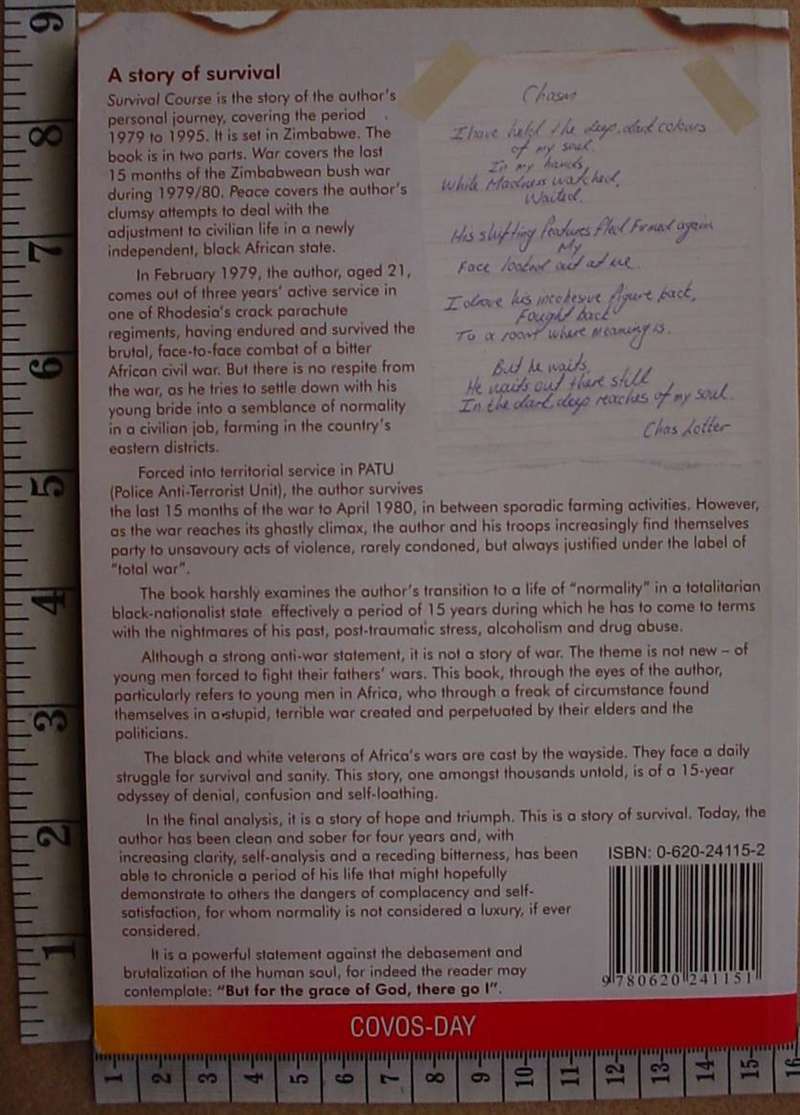 A story of survival
Survival Course is the story of the author's
personal journey, covering the period
1979 to 1995. It is set in Zimbabwe. The
book is in two parts. War covers the last
15 months of the Zimbabwean bush war
during 1979/80. Peace covers the author's
clumsy attempts to deal with the
adjustment to civilian life in a newly
independent, black African state.
In February 1979, the author, aged 21,
comes out of three years' active service in
one of Rhodesia's crack parachute
regiments, having endured and survived the
brutal, face-to-face combat of a bitter
African civil war. But there is no respite from
the war, as he tries to settle down with his
young bride into a semblance of normality
in a civilian job, farming in the country's
eastern districts.
Forced into territorial service in PATU
(Police Anti-Terrorist Unit), the author survives
the last 15 months of the war to April 1980, in between sporadic farming activities. However,
as the war reaches its ghastly climax, the author and his troops increasingly find themselves
party to unsavoury acts of violence, rarely condoned, but always justified under the label of
"total war".
The book harshly examines the author's transition to a life of "normality" in a totalitarian
black-nationalist state effectively a period of 15 years during which he has to come to terms
with the nightmares of his past, post-traumatic stress, alcoholism and drug abuse.
Although a strong anti-war statement, it is not a story of war. The theme is not new – of
young men forced to fight their fathers' wars. This book, through the eyes of the author,
particularly refers to young men in Africa, who through a freak of circumstance found
themselves in a stupid, terrible war created and perpetuated by their elders and the
politicians.
The black and white veterans of Africa's wars are cast by the wayside. They face a daily
struggle for survival and sanity. This story, one amongst thousands untold, is of a 15-year
odyssey of denial, confusion and self-loathing.
In the final analysis, it is a story of hope and triumph. This is a story of survival. Today, the
author has been clean and sober for four years and, with
increasing clarity, self-analysis and a receding bitterness, has been
able to chronicle a period of his life that might hopefully
demonstrate to others the dangers of complacency and self-
satisfaction, for whom normality is not considered a luxury, if ever
considered.
It is a powerful statement against the debasement and
brutalization of the human soul, for indeed the reader may
contemplate: "But for the grace of God, there go I".
Chasm
I have held the deep, dark colours
of my soul
In my hands,
While Madness watched,
Waited.
His shifting features fled Formed again
My
Face looked out at me.
I drove his incohesive figure back,
Fought back
To a room where meaning is.
But he waits,
He waits out there still
In the dark, deep reaches of my soul.
Chas Lotter
ISBN: 0-620-24115-2
9 780620 241151
COVOS-DAY
9
8
7
6
5
4
3
2
1
1 2 3 4 5 6 7 8 9 10 11 12 13 14 15 16